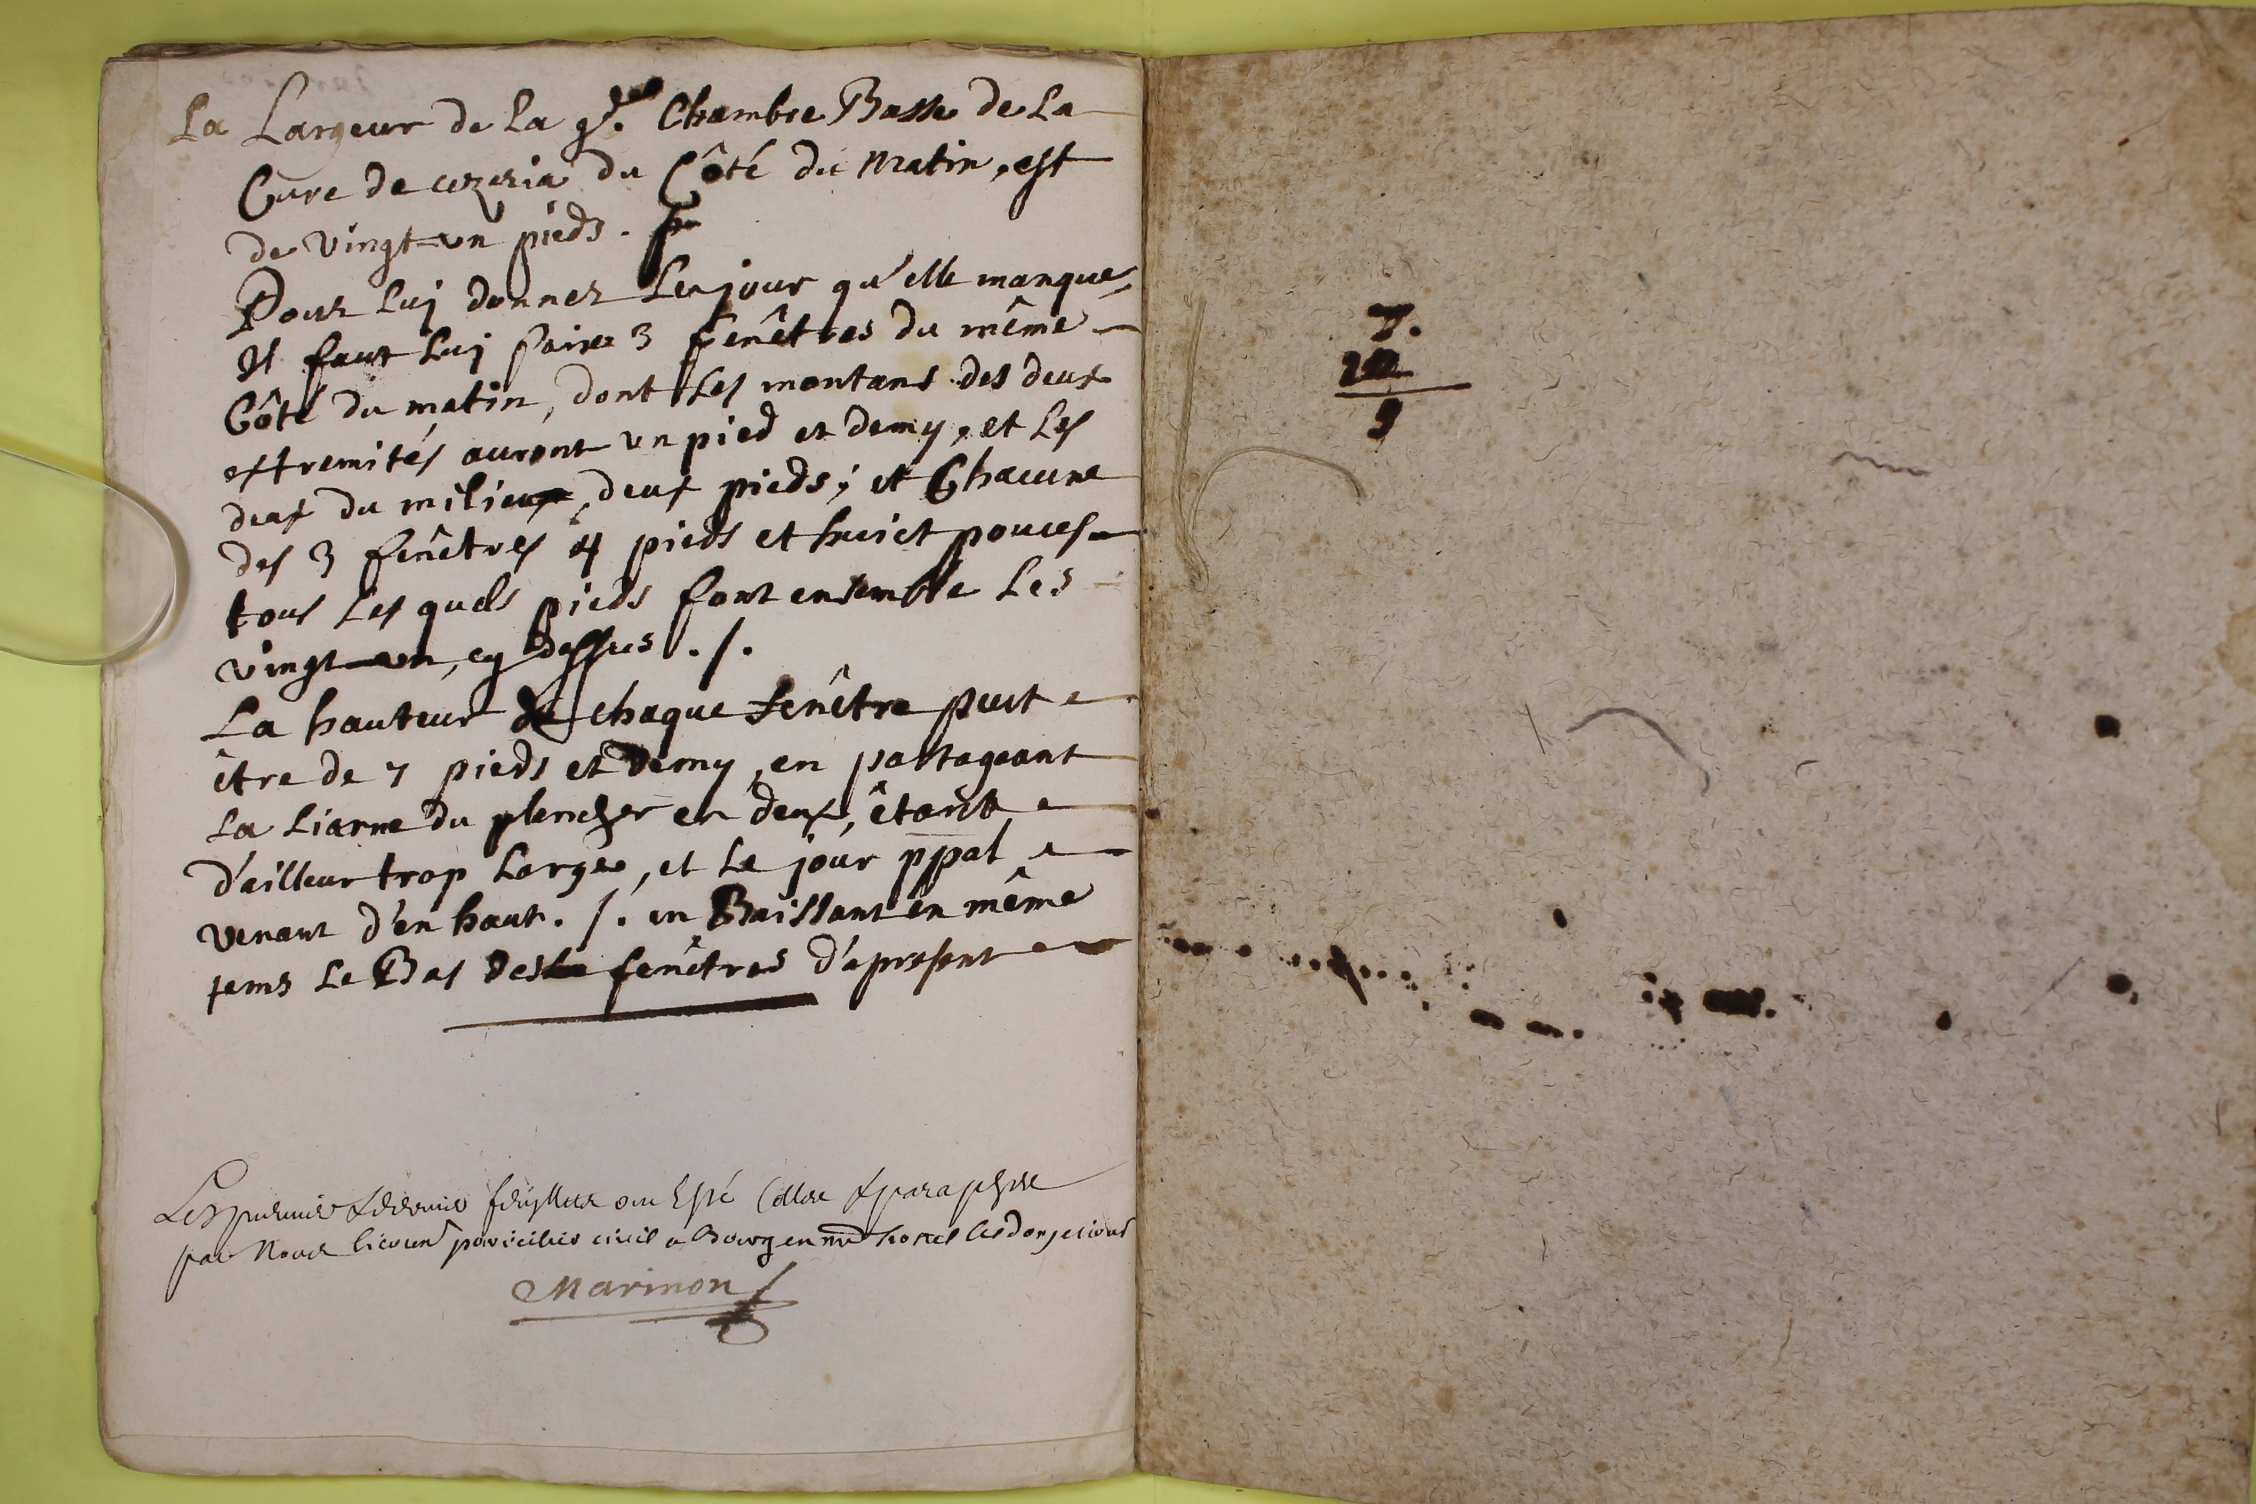 La Largeur de La gde. Chambre Basse de La
Cure de cezeria du Côté du matin, est
de vingt-un pieds.
Pour Luj donner Le jour qu'elle manque,
Il faut Luj faire 3 fenêtres du même
Côté du matin, dont Les montans des deux
extremités auront un pied et demy, et Les
deux du milieu, deux pieds; et Chacune
des 3 fenêtres 4 pieds et huict pouces
tous Les quels pieds font ensemble Les
vingt-un, cy dessus ./.
La hauteur de chaque fenêtre peut
être de 7 pieds et demy, en partageant
La Liarne du plencher en deux, étant
d'ailleur trop Large, et Le jour ppal
venant d'en haut ./. en Baissant en même
tems Le Bas des fenêtres d'apresent
Les premier & dernier feuillets ont Esté Cottés & paraphes
par Nous lieutent particulier civil a Bourg en hostel Les
Marinon
7.
2
9